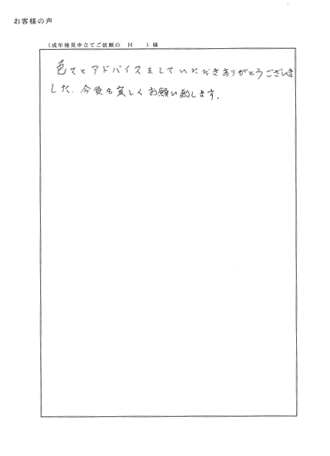 お客様の声
(成年後見申立てご依頼の　H　　)様
色々とアドバイスをしていただきありがとうございま
した。今後も宜しくお願い致します。